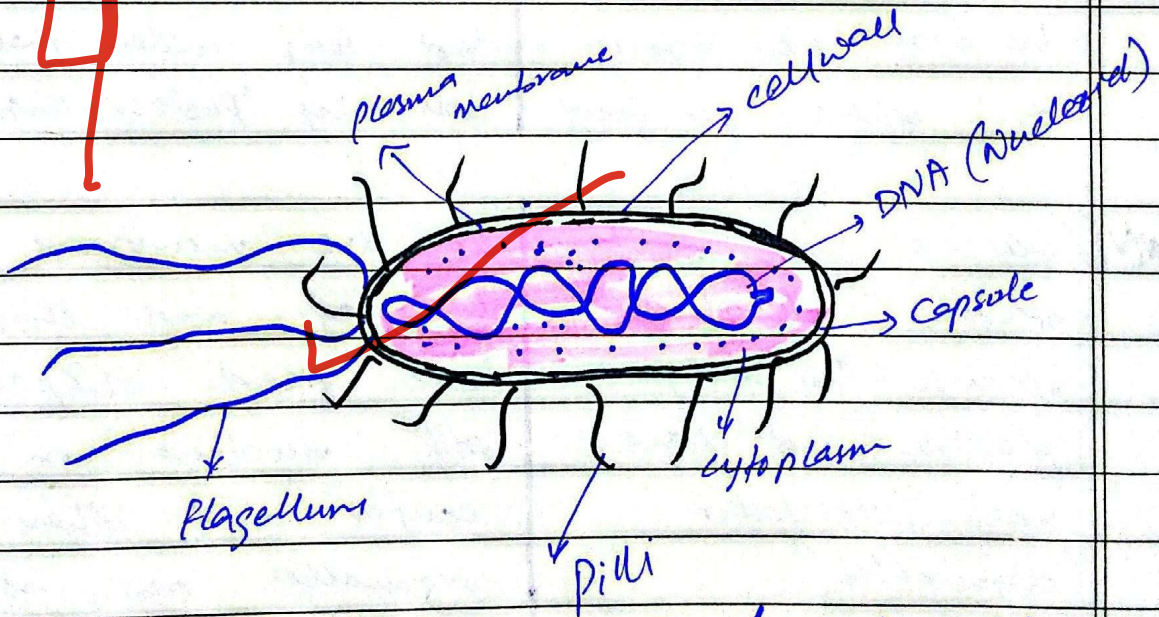 4
plasma
membrane
cellwall
DNA (Nucleoid)
Capsule
cytoplasm
flagellum
Pilli